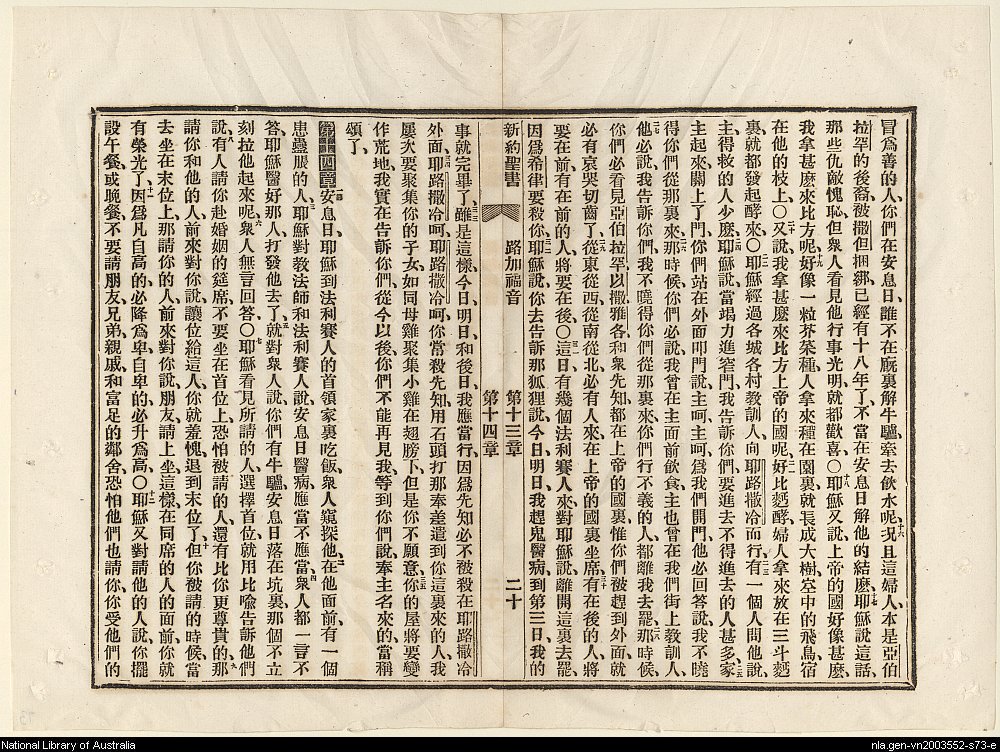 冒爲善的人、你們在安息日、誰不在廐裏解牛驢牽去飲水呢、十六况且這婦人、本是亞伯
拉罕的後裔、被撒但捆綁、已經有十八年了、不當在安息日解他的結麽、十七耶穌說這話、
那些仇敵愧恥、但衆人看見他行事光明、就都歡喜、〇十八耶穌又說、上帝的國好像甚麽、
我拿甚麽來比方呢、十九好像一粒芥菜種、人拿來種在園裏、就長成大樹、空中的飛鳥宿
在他的枝上、〇二十又說、我拿甚麽來比方上帝的國呢、二一好比麪酵、婦人拿來放在三斗麪
裏、就都發起酵來、〇二二耶穌經過各城各村教訓人、向耶路撒冷而行、二三有一個人問他說、
主、得救的人少麽、耶穌說、二四當竭力進窄門、我告訴你們、要進去不得進去的人甚多、二五家
主起來、關上了門、你們站在外面叩門、說、主呵、主呵、爲我們開門、他必回答說、我不曉
得你們從那裏來、二六那時候你們必說、我曾在主面前飲食、主也曾在我們街上教訓人、二七
他必說、我告訴你們、我不曉得你們從那裏來、你們行不義的人、都離我去罷、二八那時候
你們必看見亞伯拉罕以撒雅各和衆先知、都在上帝的國裏、惟你們被趕到外面、就
必有哀哭切齒了、二九從東從西從南從北、必有人來、在上帝的國裏坐席、三十有在後的人、將
要在前、有在前的人、將要在後、〇三一這日有幾個法利賽人、來對耶穌說、離開這裏去罷、
因爲希律要殺你、三二耶穌說、你去告訴那狐狸說、今日明日、我趕鬼醫病、到第三日、我的
新約聖書 路加福音 第十三章 第十四章 二十
事就完畢了、三三雖是這樣、今日、明日、和後日、我應當行、因爲先知必不被殺在耶路撒冷
外面、三四耶路撒冷呵、耶路撒冷呵、你常殺先知、用石頭打那奉差遣到你這裏來的人、我
屢次要聚集你的子女、如同母雞聚集小雞在翅膀下、但是你不願意、三五你的屋將要變
作荒地、我實在告訴你們、從今以後、你們不能再見我、等到你們說、奉主名來的、當稱
頌了、
第十四章一安息日、耶穌到法利賽人的首領家裏吃飯、衆人窺探他、二在他面前、有一個
患蠱脹的人、三耶穌對教法師和法利賽人說、安息日醫病、應當不應當、四衆人都一言不
答、耶穌醫好那人、打發他去了、五就對衆人說、你們有牛驢、安息日落在坑裏、那個不立
刻拉他起來呢、六衆人無言回答、〇七耶穌看見所請的人選擇首位、就用比喩告訴他們
說、八有人請你赴婚姻的筵席、不要坐在首位上、恐怕被請的人、還有比你更尊貴的、九那
請你和他的人前來對你說、讓位給這人、你就羞愧退到末位了、十但你被請的時候、當
去坐在末位上、那請你的人前來對你說、朋友、請上坐、這樣、在同席的人的面前、你就
有榮光了、十一因爲凡自高的必降爲卑、自卑的必升爲高、〇十二耶穌又對請他的人說、你擺
設午餐、或晚餐、不要請朋友、兄弟、親戚、和富足的鄰舍、恐怕他們也請你、你受他們的
National Library of Australia
nla.gen-vn2003552-s73-e